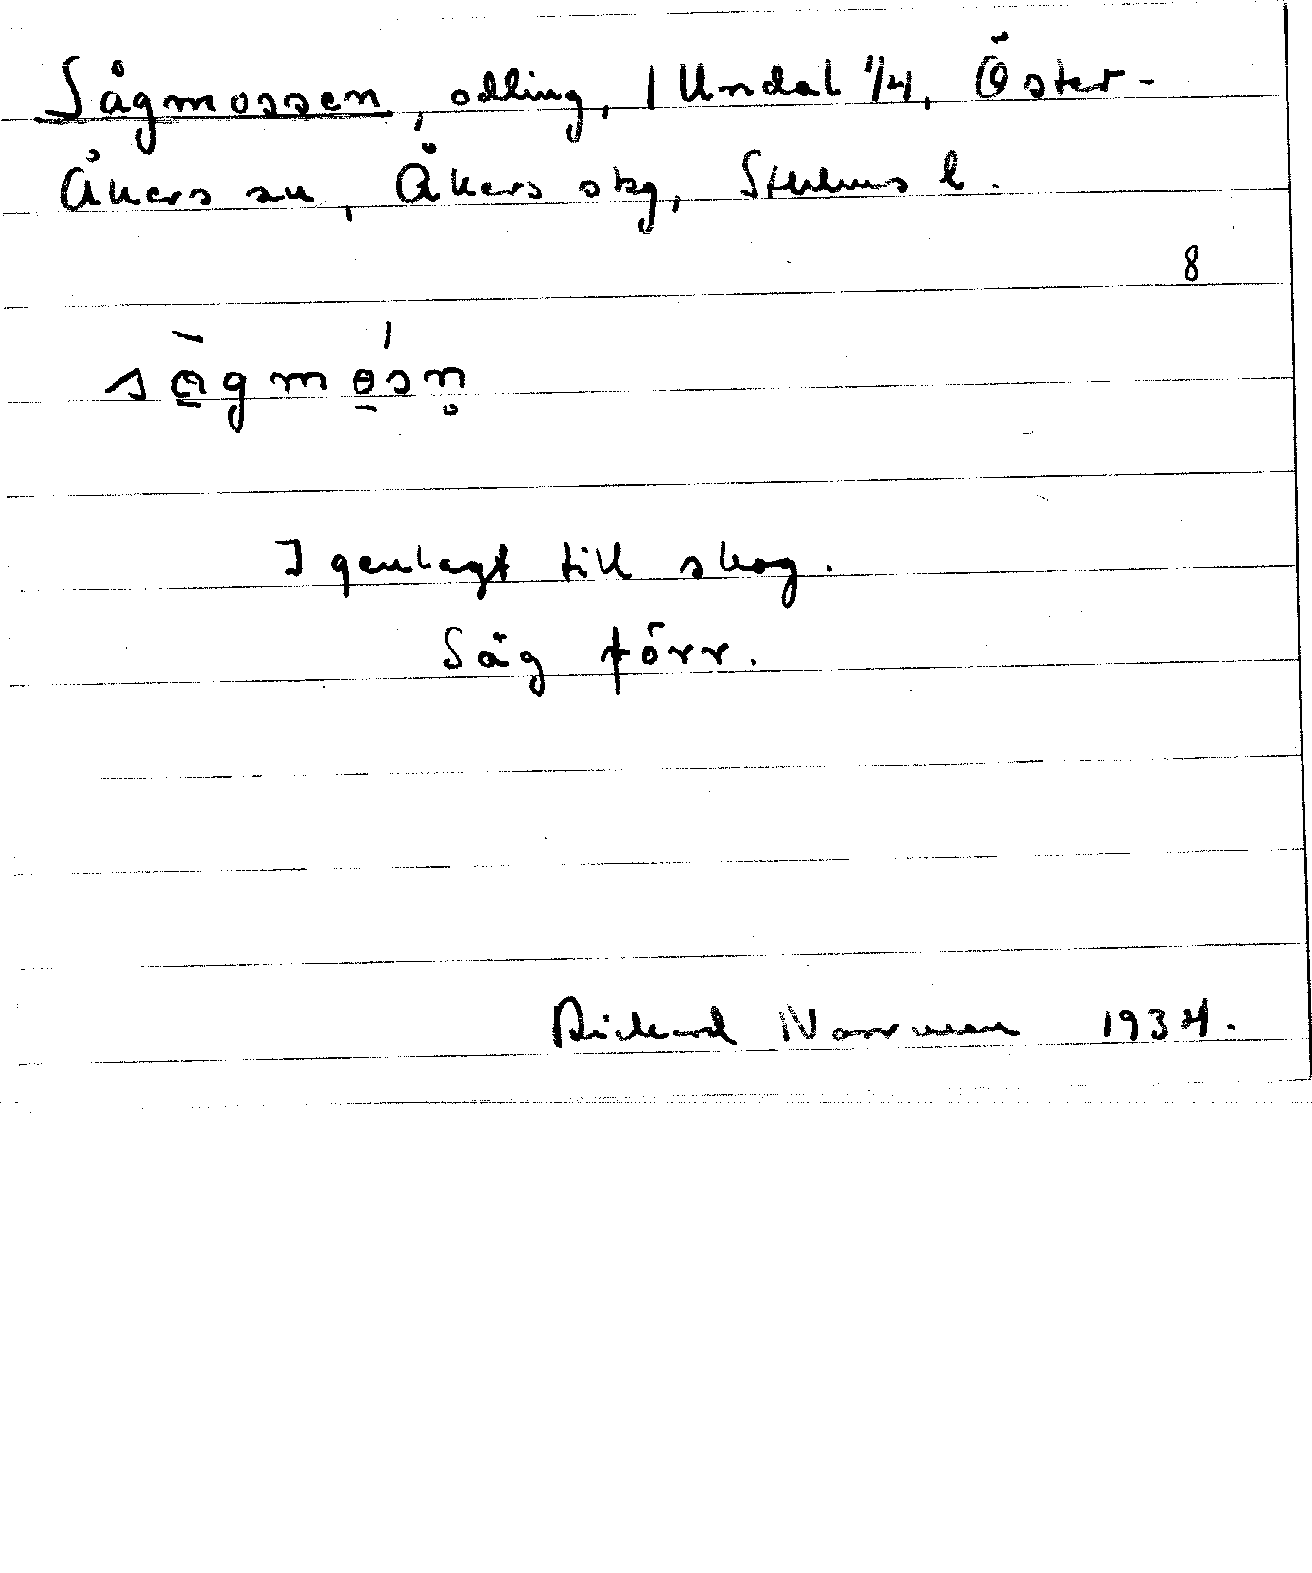 Sågmossen, odling, 1 Undal 1/4, Öster-
Åkers sn, Åkers skg, Sthlms l.
8
Igenlagt till skog.
Såg förr.
Rickard Norrman 1934.